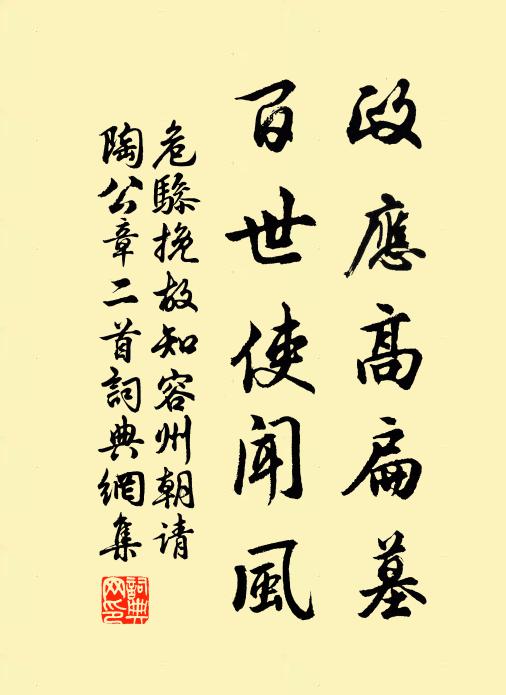 政應高扁墓
百世使聞風
危驂挽故知容州朝请
陶公章二首詞典網集
詞典網印